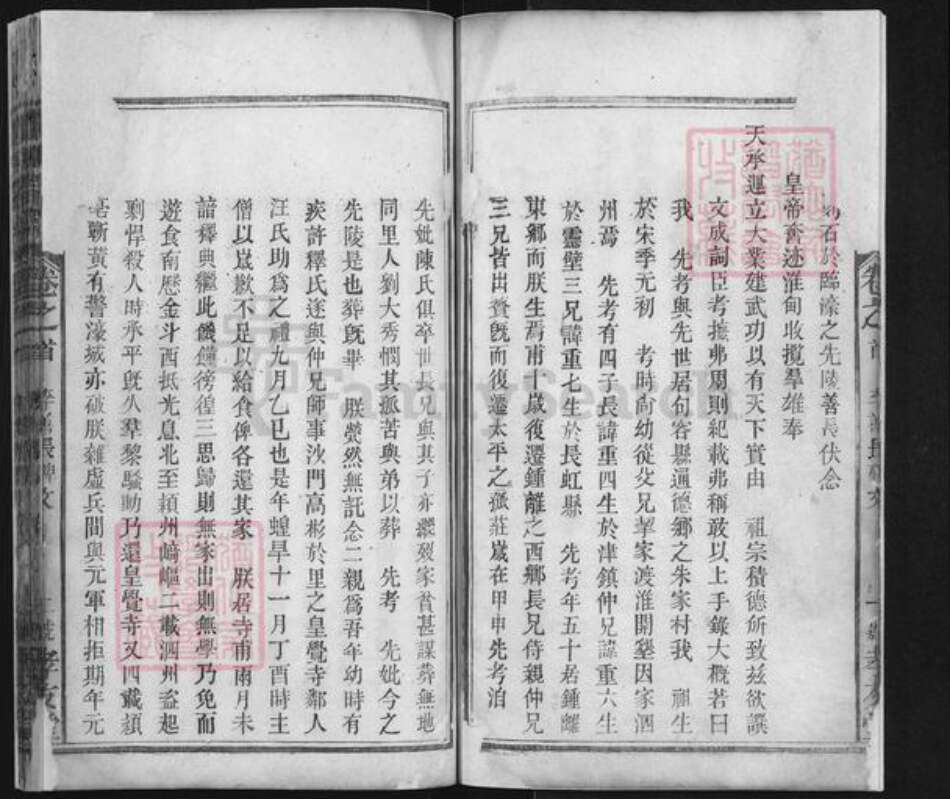 石於臨濠之先陵善長伏念
皇帝奮迹淮甸收攬羣雄奉
天承運立大業建武功以有天下實由 祖宗積德所致茲欲譔
文成詞臣考據弗周則紀載弗稱敢以上手錄大概若曰
我 先考與先世居句容縣通德鄉之朱家村我 祖生
於宋季元初 考時尙幼從父兄挈家渡淮開墾因家泗
州焉 先考有四子長諱重四生於津鎮仲兄諱重六生
於靈壁三兄諱重七生於長虹縣 先考年五十居鍾離
東鄉而朕生焉甫十歲復遷鍾離之西鄉長兄侍親仲兄
三兄皆出贅旣而復遷太平之孤莊歲在甲申先考洎
先妣陳氏俱卒世長兄與其子亦繼歿家貧甚謀葬無地
同里人劉大秀憫其孤苦與弟以葬 先考 先妣今之
先陵是也葬旣畢 朕煢然無託念二親爲吾年幼時有
疾許釋氏遂與仲兄師事沙門高彬於里之皇覺寺鄰人
汪氏助爲之禮九月乙巳也是年蝗旱十一月丁酉時主
僧以歲歉不足以給食俾各還其家 朕居寺甫兩月未
諳釋典繼此饑饉徬徨三思歸則無家出則無學乃免而
遊食南歷金斗西抵光息北至穎州崎嶇二載泗州盜起
剽悍殺人時承平旣久羣黎騷動乃還皇覺寺又四載穎
亳蘄黃有警濠城亦破朕雜處兵間與元軍相拒期年元
卷之首
李善長碑文
孝友堂
卷之首
李善長碑文
孝友堂
FamilySearch